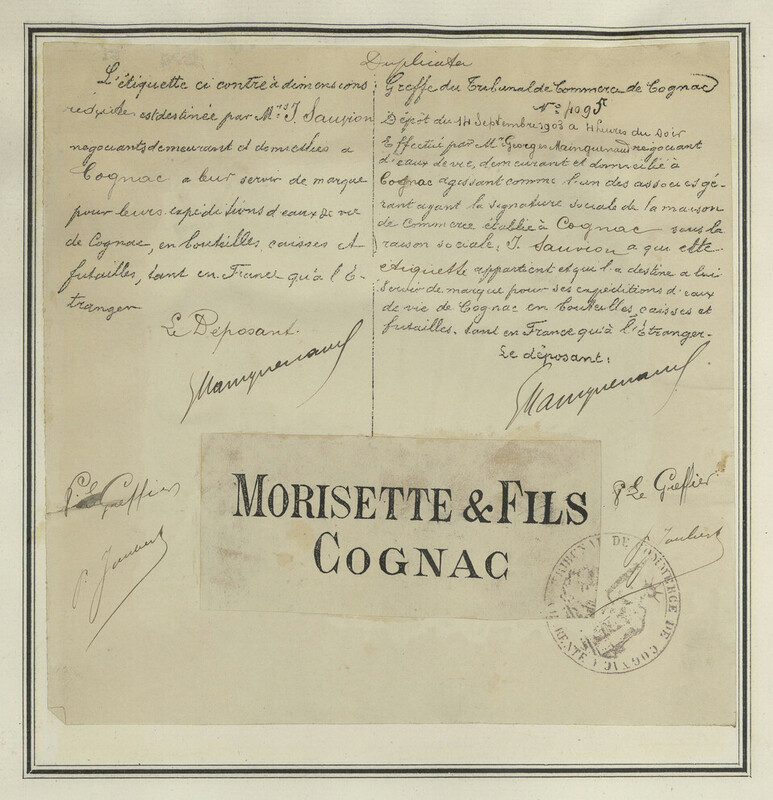 Duplicata
L'étiquette ci contre à dimensions
réduites est destinée par Mrs J. Sauvion
negociants demeurant et domiciliés a
Cognac a leur servir de marque
pour leurs expéditions d'eaux de vie
de Cognac, en bouteilles, caisses et
futailles, tant en France qu'à l'E-
tranger
Le Déposant.
Greffe du Tribunal de Commerce de Cognac
No 1095
Dépot du 14 Septembre 1903 a 4 heures du soir
Effectué par Mr Georges Mainguenaud negociant
d'eaux de vie, demeurant et domicilié à
Cognac agissant comme l'un des associés gé-
rant ayant la signature sociale de la maison
de Commerce établie à Cognac sous la
raison sociale: J. Sauvion a qui cette
étiquette appartient et qui l'a destine a lui
servir de marque pour ses expéditions d'eaux
de vie de Cognac en bouteilles, caisses et
futailles, tant en France qu'à l'Etranger.
Le déposant:
Mainguenaud
Mainguenaud
P. Le Greffier
P. Le Greffier
MORISETTE & FILS
COGNAC
TRIBUNAL DE COMMERCE DE COGNAC